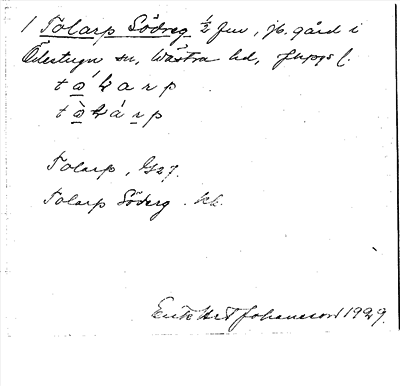 1 Tolarp Södreg. ½ frm, jb. gård i
Ödestugu sn, Västra hd, Jkpgs l.
tólarp
tòlárp
Tolarp, G27.
Tolarp Söderg. kk.
Erik Art Johansson 1929.